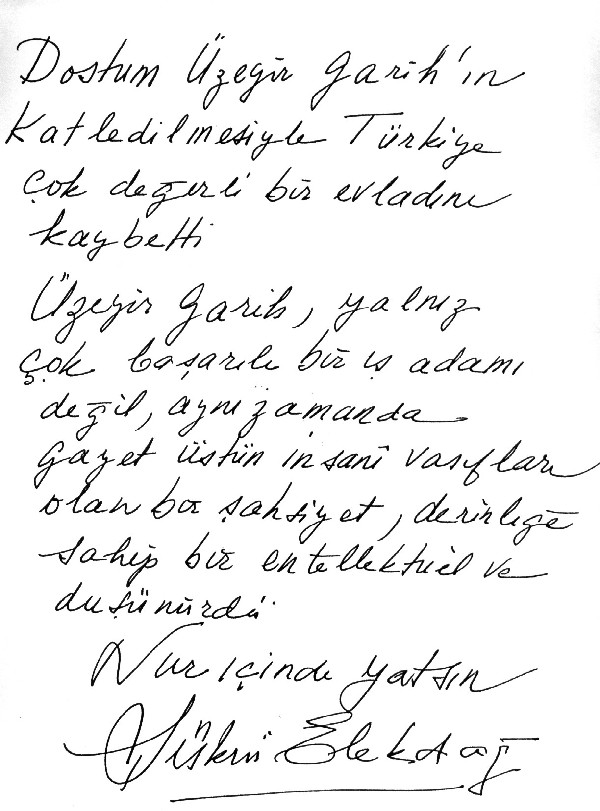 Dostum Üzeyir Garih'in
Katledilmesiyle Türkiye
çok değerli bir evladını
kaybetti
Üzeyir Garih, yalnız
çok başarılı bir iş adamı
değil, aynı zamanda
gayet üstün insanî vasıfları
olan bir şahsiyet, derinliğe
sahip bir entellektüel ve
düşünürdü
Nur içinde yatsın
Şükrü Elekdağ